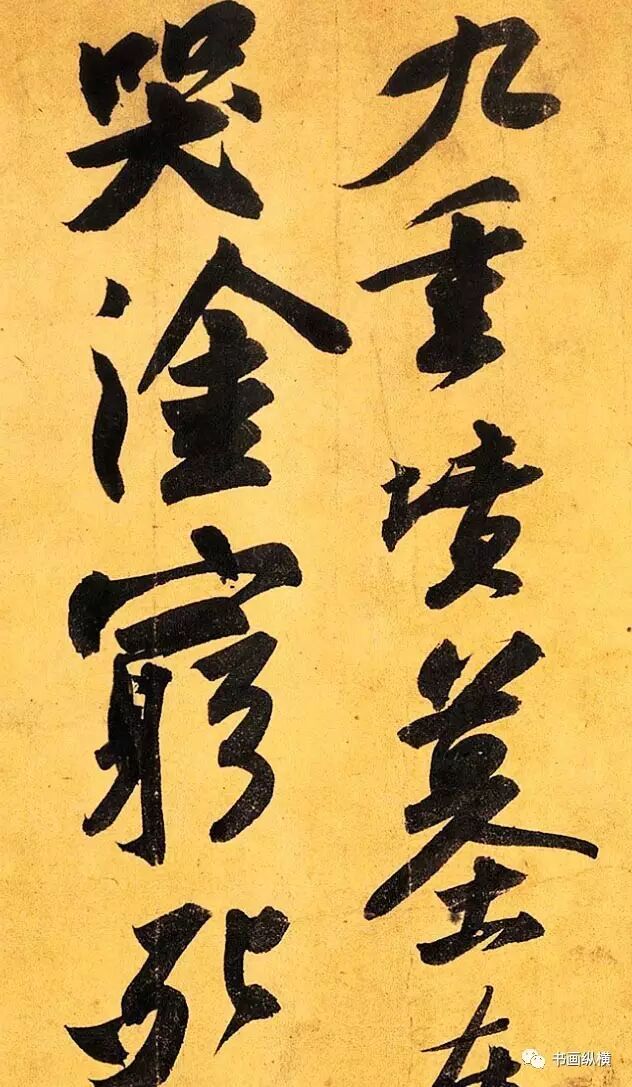 九重墳墓在
哭塗窮死
书画纵横